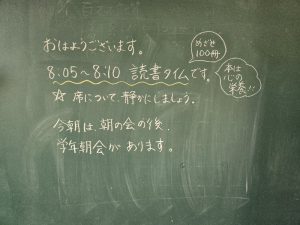 おはようございます。
8:05～8:10 読書タイムです。
めざせ
100冊
本は
心の
栄養!!
☆ 席について、静かにしましょう。
今朝は、朝の会の後、
学年朝会が あります。